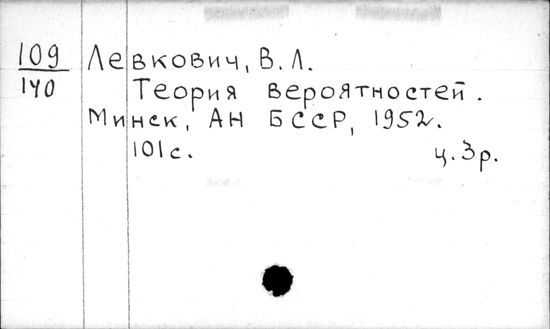 109 Левкович, В. Л.
140 Теория вероятностей.
Минск, АН БССР, 1952.
101 с. ц. 3 р.